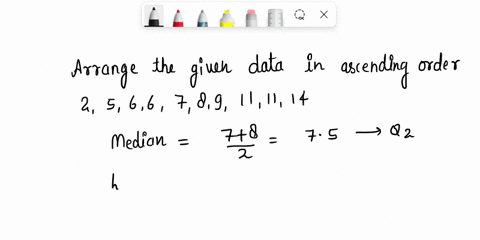 Arrange the given data in ascending order
2, 5, 6, 6, 7, 8, 9, 11, 11, 14
Median = 7+8/2 = 7.5 → Q2